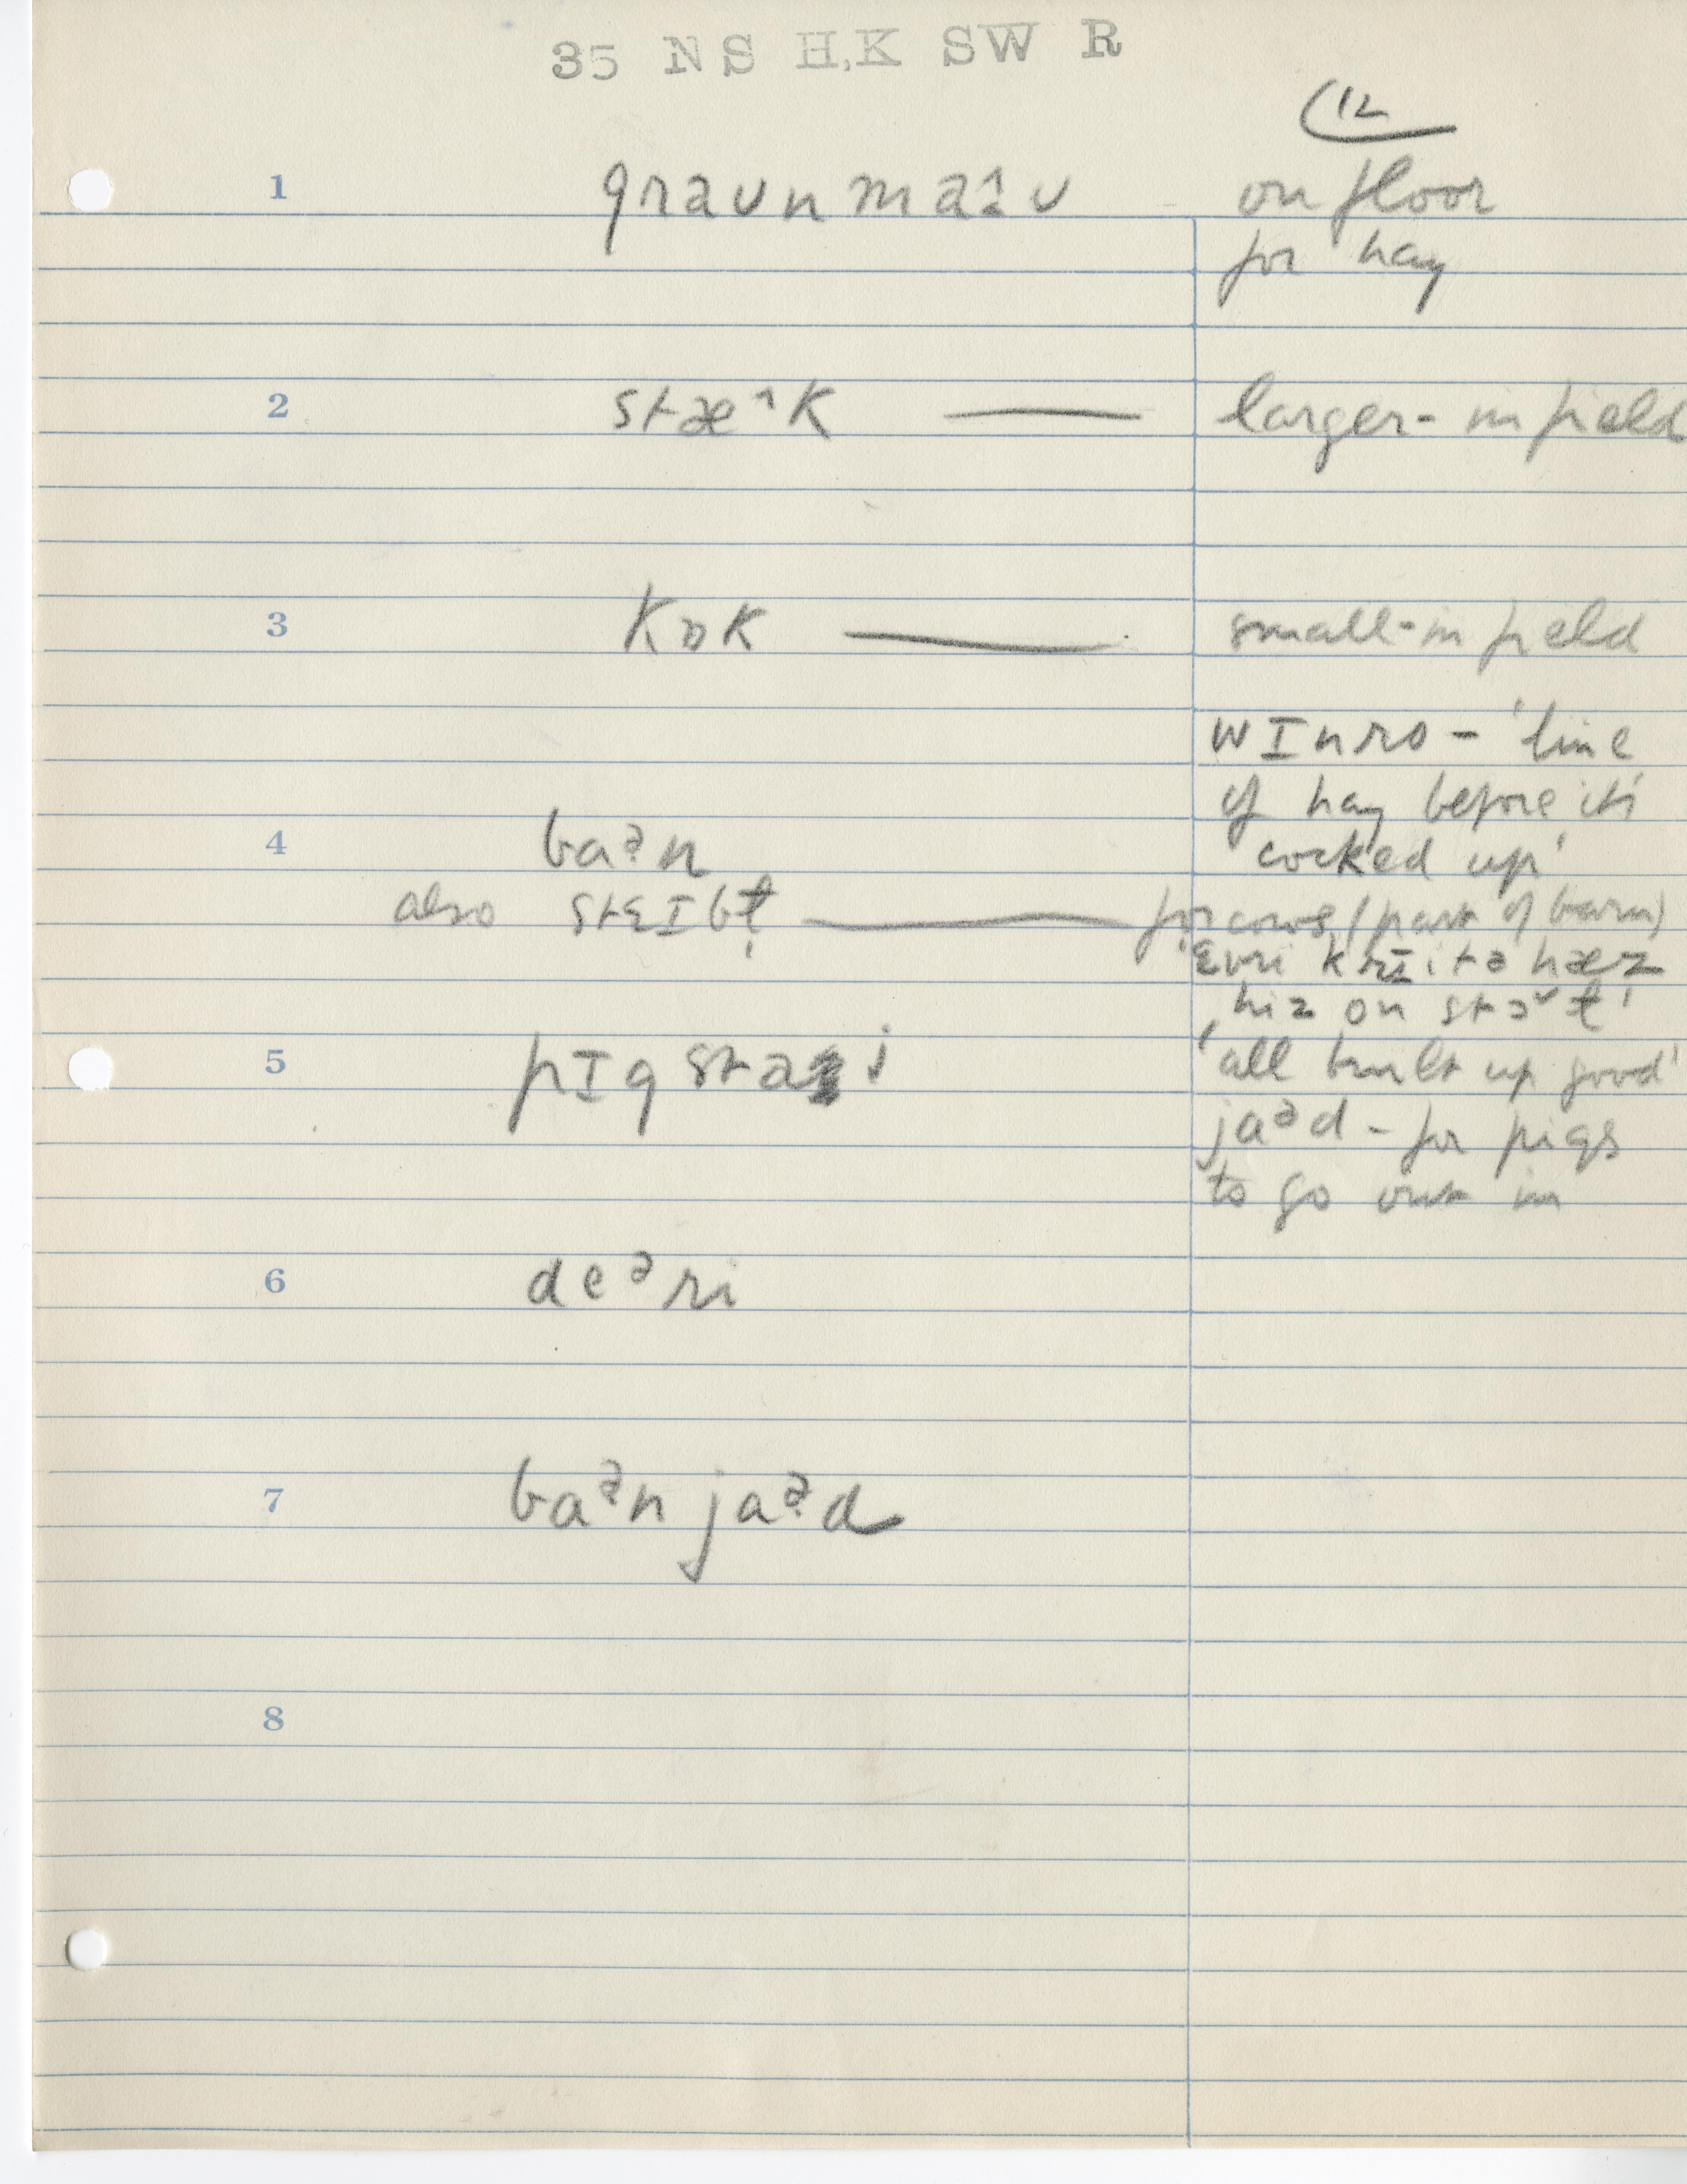 35 NS H,K SW R
12
1 graʊnmaʊ on floor
for hay
2 stæ^k — larger - in field
3 kɒk — small - in field
wɪnro - 'line
of hay before it's
4 baᵊn cocked up'
also stɛɪbɫ̩ — for cows (part of barn)
'ɛvri krɪitə hæz
hiz on stɔˇɫ'
5 pɪgstai 'all built up good'
jaᵊd - for pigs
to go out in
6 deᵊri
7 baᵊn jaᵊd
8